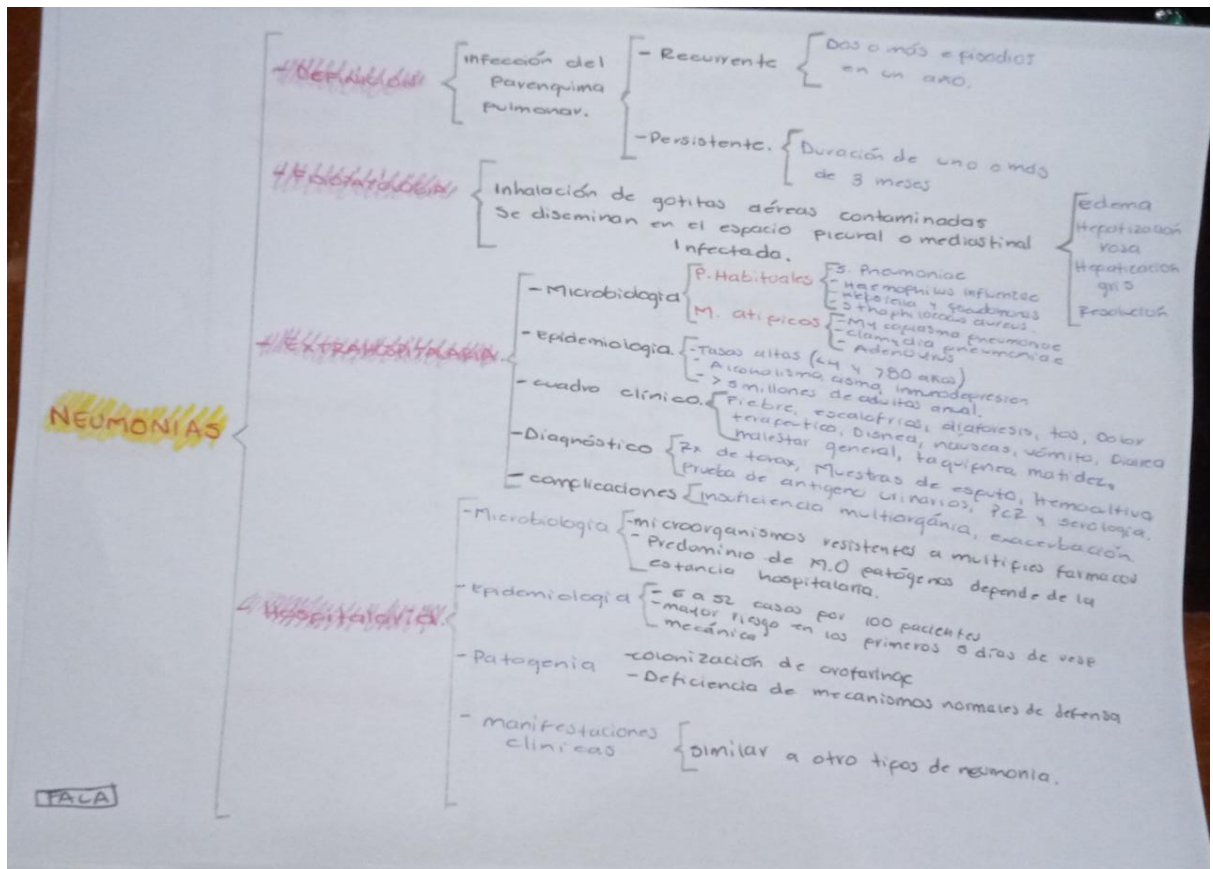 NEUMONIAS
- Definición
infección del
parenquima
pulmonar.
- Recurrente
Dos o más episodios
en un año.
- Persistente.
Duración de uno o más
de 3 meses
- Fisiopatología
Inhalación de gotitas aéreas contaminadas
se diseminan en el espacio pleural o mediastinal
Infectado.
edema
Hepatización
roja
Hepatización
gris
Resolución
- Extrahospitalaria
- Microbiologia
P. Habituales
- S. Pneumoniae
- Haemophilus influenzae
- Klebsiella y pseudomonas
- Sthaphilococus aureus.
M. atipicos
- Mycoplasma pneumoniae
- Clamydia pneumoniae
- Adenovirus
- epidemiologia
- Tasas altas (<4 y >80 años)
- Alcoholismo, asma, inmunodepresion
- > 5 millones de adultos anual.
- cuadro clínico.
Fiebre, escalofrios, diaforesis, tos, Dolor
Disnea, náuseas, vómito, Diarea
malestar general, taquipnea, matidez,
- Diagnóstico
Rx de torax, Muestras de esputo, Hemocultivo
Prueba de antigeno urinarios, PCR y serología.
- complicaciones
Insuficiencia multiorgánia, exacerbación.
- Hospitalaria.
- Microbiologia
- microorganismos resistentes a multiples farmacos
- Predominio de M.O patógenos depende de la
estancia hospitalaria.
- Epidemiologia
- 6 a 52 casos por 100 pacientes
- mayor riesgo en los primeros 5 días de vesp
mecánica
- Patogenia
- colonización de orofaringe
- Deficiencia de mecanismos normales de defensa
- manifestaciones
clinicas
similar a otro tipos de neumonia.
FALA